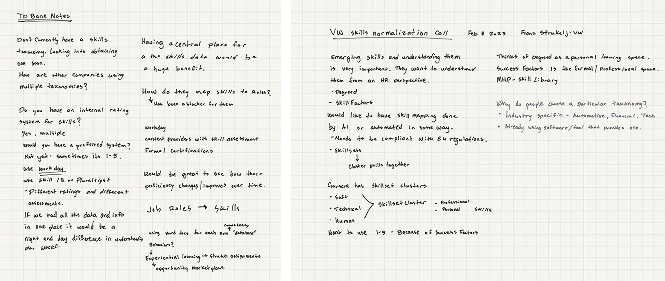 TD Bank Notes
Don't Currently have a skills
taxonomy. Looking into obtaining
one soon.
How are other companies using
multiple taxonomies?
Do you have an internal rating
system for skills?
Yes, multiple
Would you have a preferred system?
Not yet - sometimes its 1-5.
use workday
use Skill IQ on Pluralsight
- Different ratings and different
assessments.
If we had all the data and info
in one place it would be a
night and day difference in
our work.
Having a central place for
a the skills data would be
a huge benefit.
How do they map skills to Roles?
been a blocker for them
Workday
content providers with skill assessment
Formal Certifications
Would be great to see how there
proficiency changes/improves over time.
Job Roles → Skills
using work day for each one
Behaviors?
Experiential learning → Stretch assignments
opportunity marketplace
VW skills normalization Call Feb 8 2023 Frans Strukelj - VW
Emerging skills and understanding them
is very important. They want to understand
them from an HR perspective.
- Degreed
- Skill Factors
Would like to have skill mapping done
by AI or automated in some way.
- Needs to be compliant with EU regulations.
- Skillsets
Cluster skills together
Germany has skillset clusters
• Soft
• Technical
• Human
Skillset Cluster
- Professional
- Personal
Want to use 1-5 - Because of Success Factors
Thinks of Degreed as a personal learning space.
Success Factors is the formal/professional space.
Skill Library
Why do people choose a particular taxonomy?
• Industry specific - Automotive, Financial, Tech
• Already using software/tool that provides one.